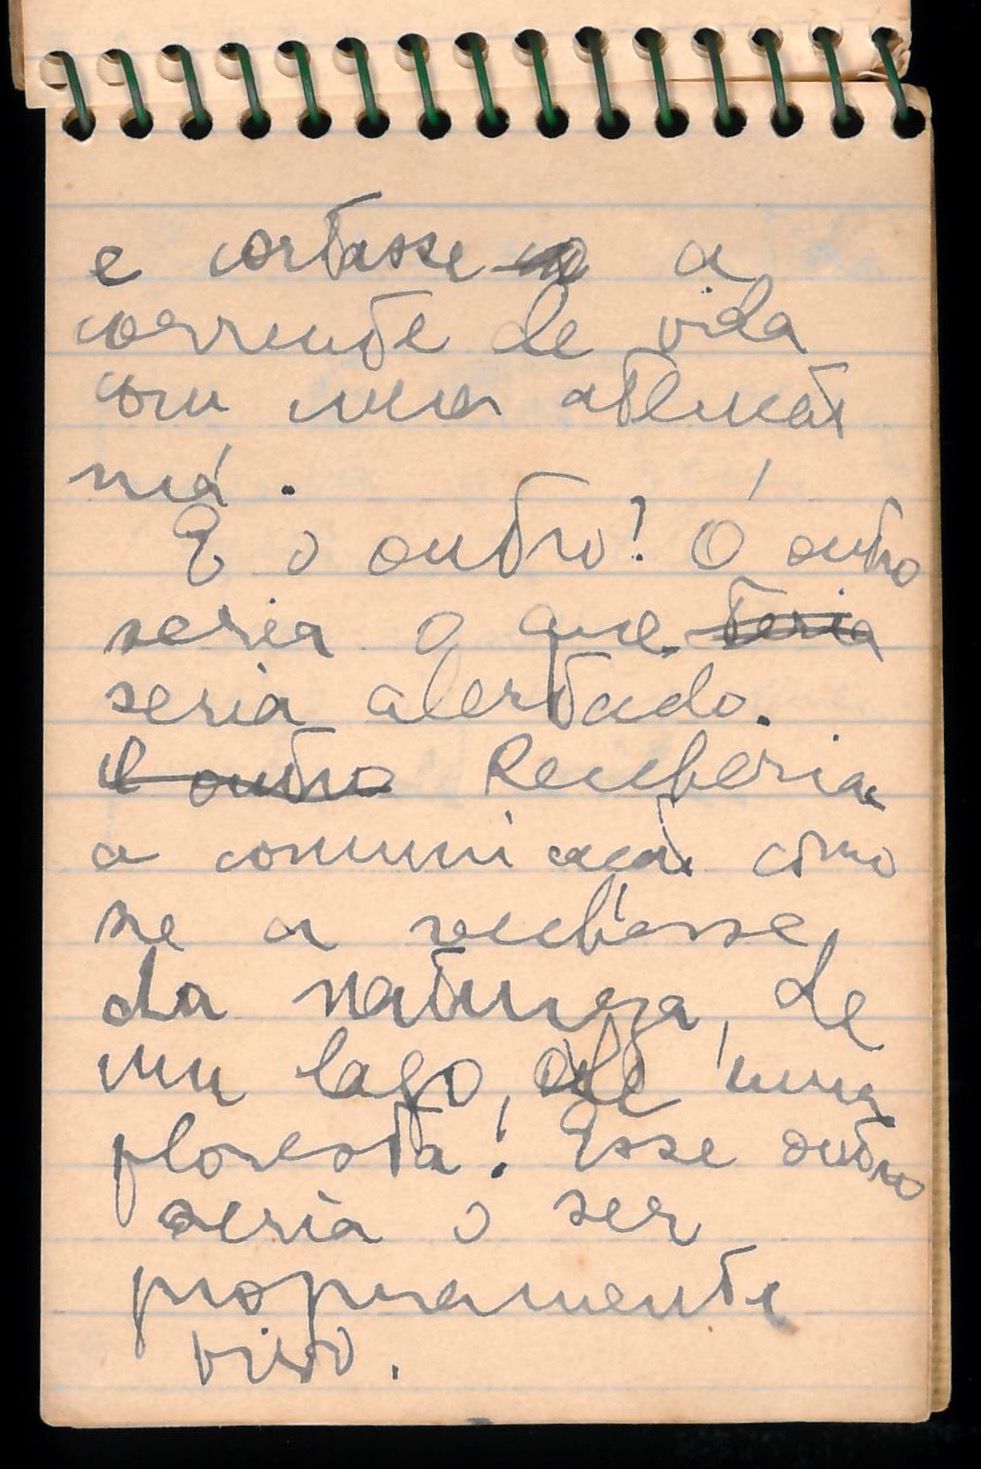 e cortasse a
corrente de vida
com uma atenção
má.
E o outro! O outro
seria o que teria
seria alertado.
E outro Receberia
a comunicação como
se a recebesse
da natureza, de
um lago, de uma
floresta! Esse outro
seria o ser
propriamente
vivo.